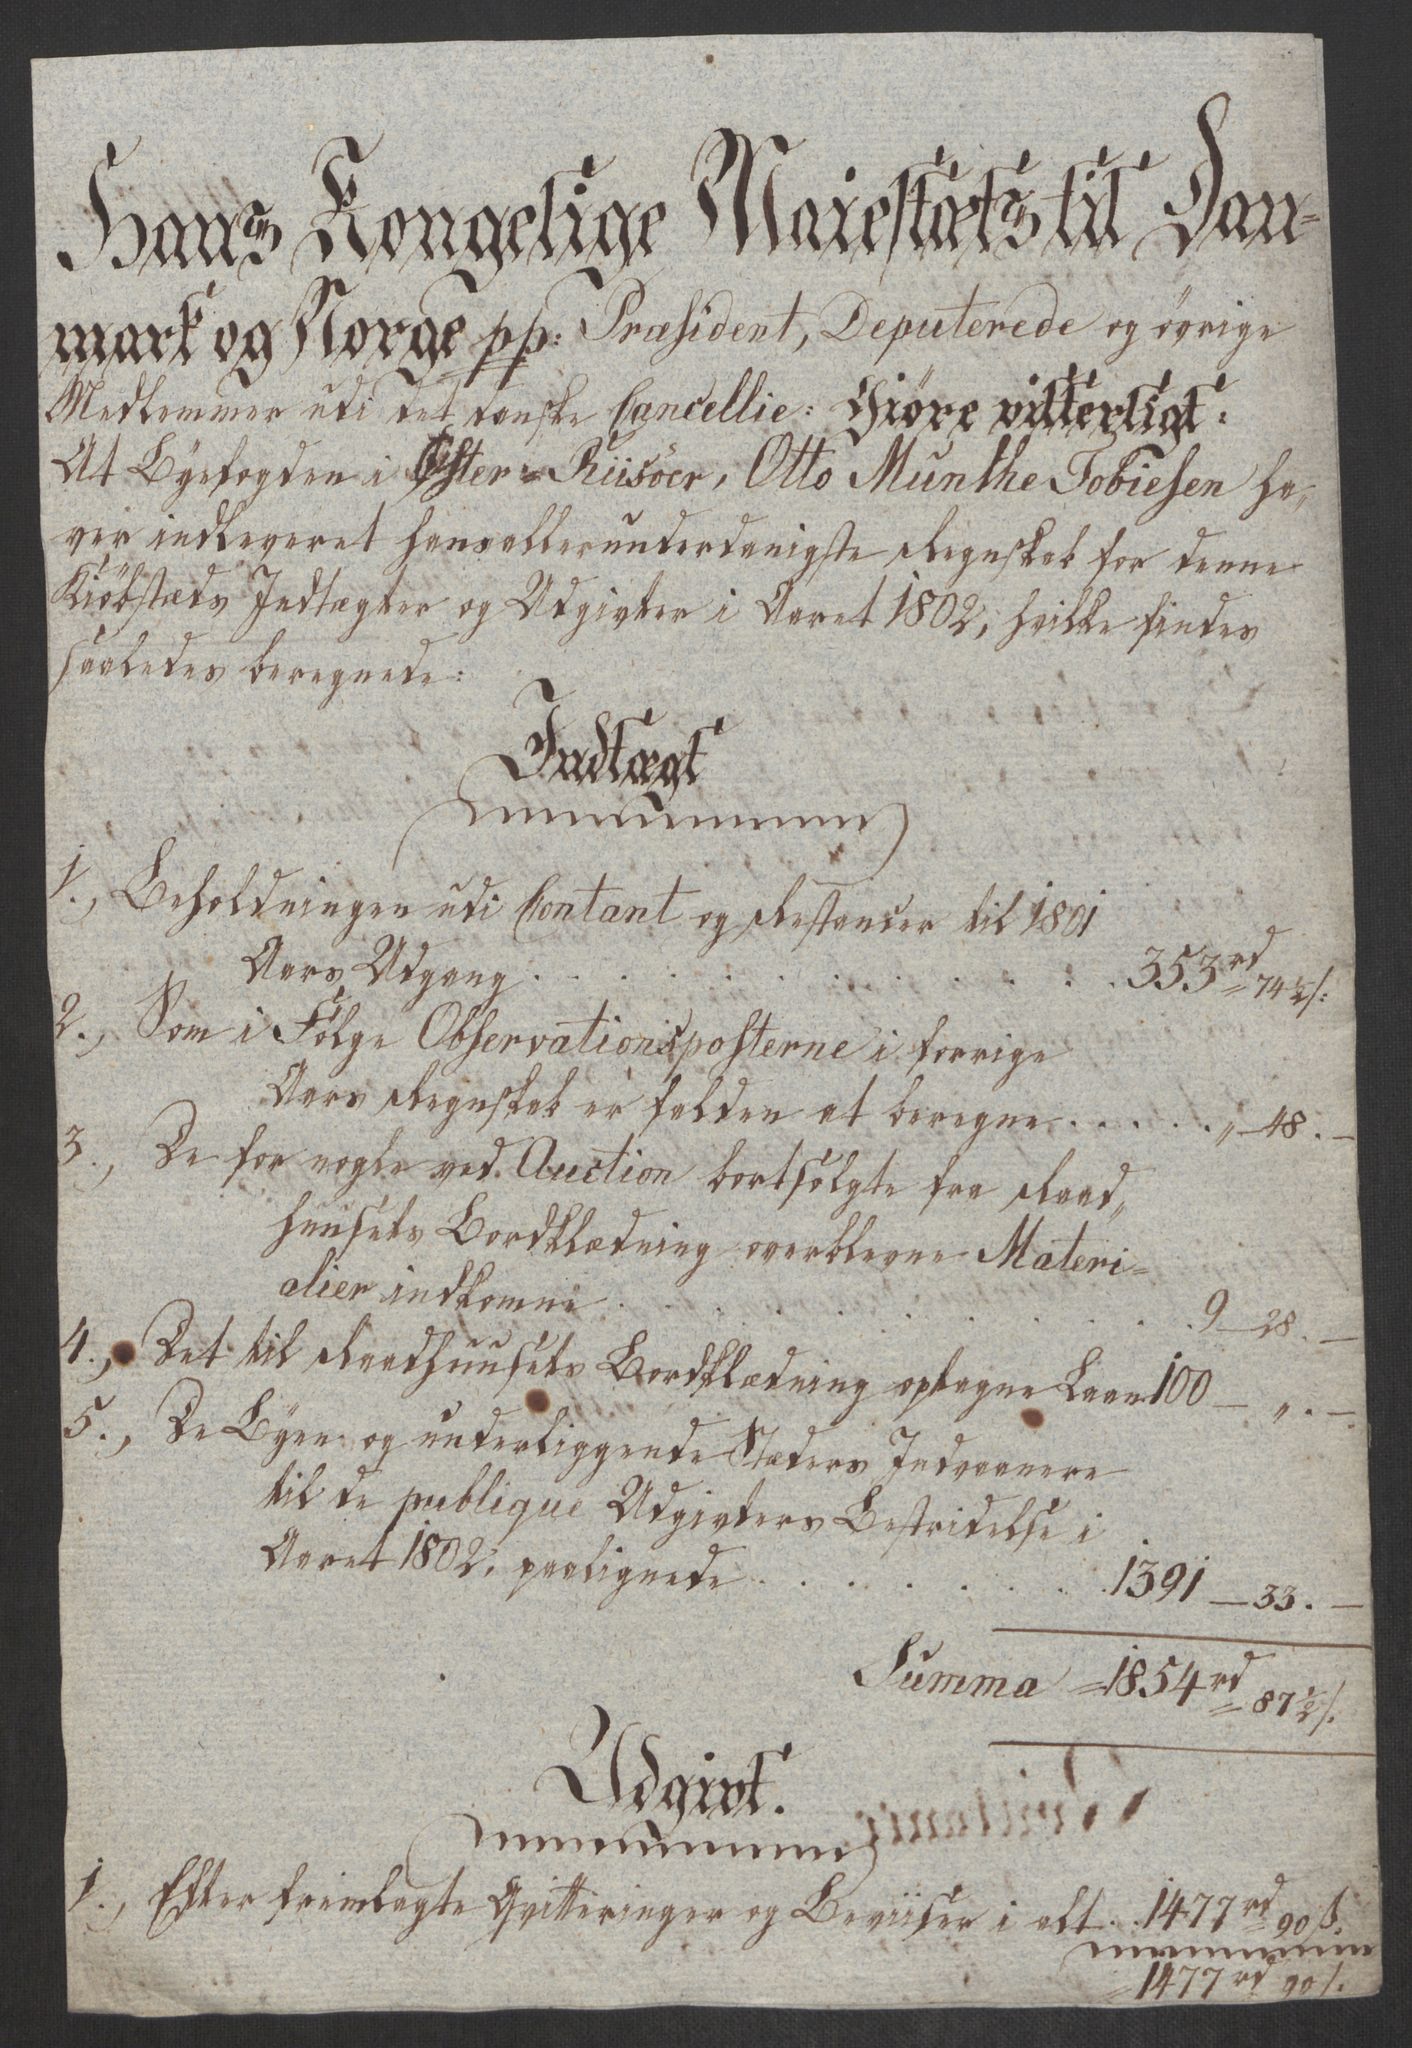 Hans Kongelige Maiestæts til Dan-
mark og Norge pp: Præsident, Deputerede og övrige
Medlemmer udi det danske Cancellie: Giöre vitterligt:
At Byefogden i Öster-Riisöer, Otto Munthe Tobiesen ha-
ver indleveret hans allerunderdanigste Regnskab for denne
Kiöbstæds Indtægter og Udgivter i Aaret 1802, hvilke findes
saaledes beregnede:
Indtægt
1., Beholdningen udi Contant og Restancer til 1801
Aars Udgang . . . . . . . . . . . 353 rd 74½ s:
2., Som i Fölge Observationsposterne i forrige
Aars Regnskab er falden at beregne . . . . . „ — 48. —
3., De for nogle ved Auction bortsolgte fra Raad„
huusets Bordklædning overblevne Materi-
alier indkomne . . . . . . . . . . . 9 — 28. —
4., Det til Raadhuusets Bordklædning optagne Laan 100 — „. —
5., De Byen og underliggende Stæders Indvaanere
til de publique Udgivters Bestridelse i
Aaret 1802, paalignede . . . . . . . . 1391 — 33. —
Summa = 1854 rd = 87½ s.
Udgivt.
1., Efter fremlagte Qvitteringer og Beviiser i alt . . 1477 rd 90 s.
= 1477 rd 90 s.